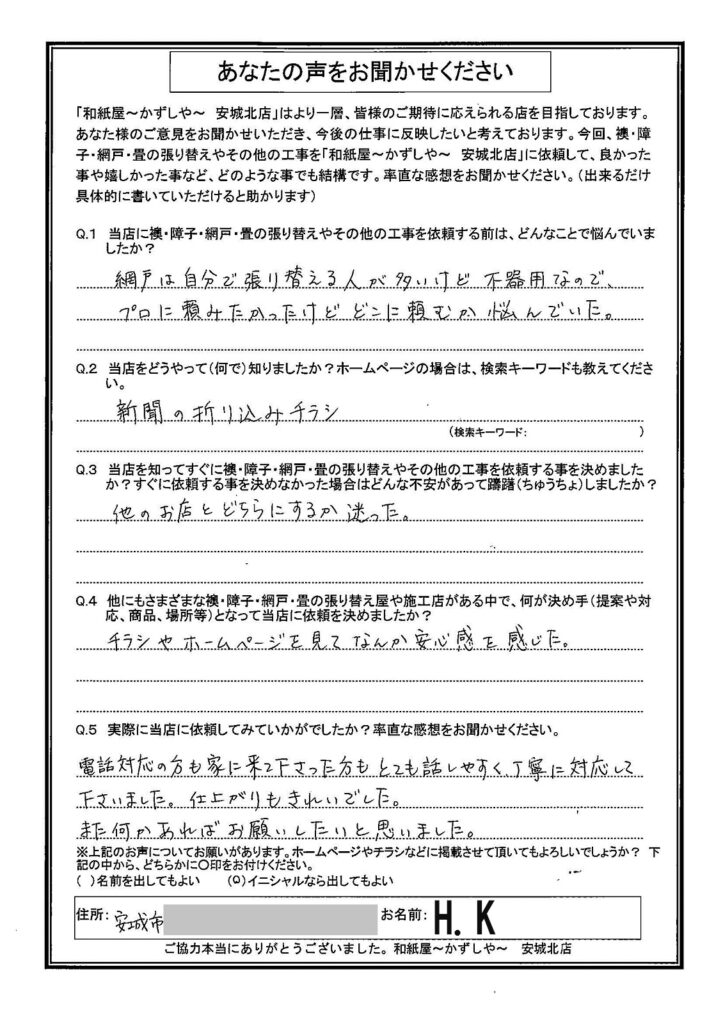 あなたの声をお聞かせください
「和紙屋～かずしや～　安城北店」はより一層、皆様のご期待に応えられる店を目指しております。
あなた様のご意見をお聞かせいただき、今後の仕事に反映したいと考えております。今回、襖・障
子・網戸・畳の張り替えやその他の工事を「和紙屋～かずしや～　安城北店」に依頼して、良かった
事や嬉しかった事など、どのような事でも結構です。率直な感想をお聞かせください。（出来るだけ
具体的に書いていただけると助かります）
Q.1　当店に襖・障子・網戸・畳の張り替えやその他の工事を依頼する前は、どんなことで悩んでいま
したか？
網戸は自分で張り替える人が多いけど 不器用なので、
プロに頼みたかったけど どこに頼むか 悩んでいた。
Q.2　当店をどうやって（何で）知りましたか？ホームページの場合は、検索キーワードも教えてくださ
い。
新聞の折り込みチラシ
（検索キーワード：　　　　　　　　　　）
Q.3　当店を知ってすぐに襖・障子・網戸・畳の張り替えやその他の工事を依頼する事を決めました
か？すぐに依頼する事を決めなかった場合はどんな不安があって躊躇（ちゅうちょ）しましたか？
他のお店と どちらにするか 迷った。
Q.4　他にもさまざまな襖・障子・網戸・畳の張り替え屋や施工店がある中で、何が決め手（提案や対
応、商品、場所等）となって当店に依頼を決めましたか？
チラシや ホームページを見て なんか 安心感を 感じた。
Q.5　実際に当店に依頼してみていかがでしたか？率直な感想をお聞かせください。
電話対応の方も家に来て下さった方も とても話しやすく、丁寧に対応して
下さいました。仕上がりもきれいでした。
また何かあれば お願いしたいと思いました。
※上記のお声についてお願いがあります。ホームページやチラシなどに掲載させて頂いてもよろしいでしょうか？　下
記の中から、どちらかに〇印をお付けください。
（　）名前を出してもよい　　（○）イニシャルなら出してもよい
住所：安城市　お名前：H. K
ご協力本当にありがとうございました。和紙屋～かずしや～　安城北店